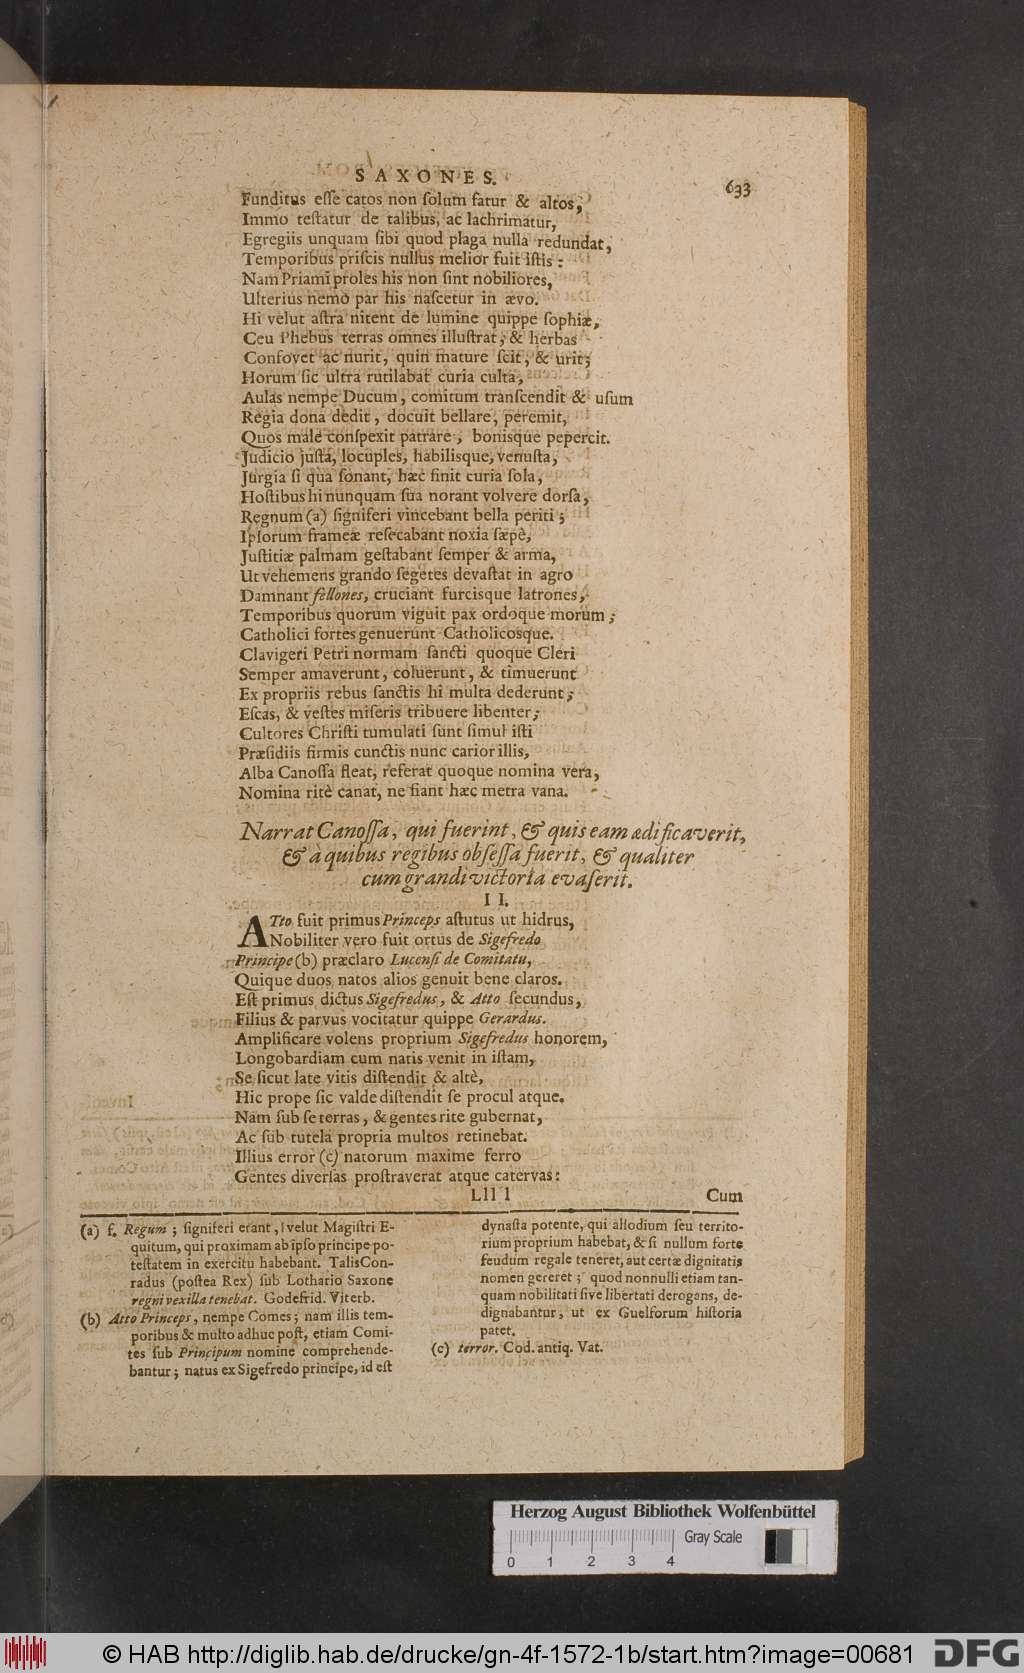 SAXONES. 633
Funditus esse catos non solum fatur & altos,
Immo testatur de talibus, ac lachrimatur,
Egregiis unquam sibi quod plaga nulla redundat,
Temporibus priscis nullus melior fuit istis:
Nam Priami proles his non sint nobiliores,
Ulterius nemo par his nascetur in ævo.
Hi velut astra nitent de lumine quippe sophiæ,
Ceu Phebus terras omnes illustrat, & herbas
Confovet ac nutrit, quin mature scit, & urit;
Horum sic ultra rutilabat curia culta,
Aulas nempe Ducum, comitum transcendit & usum
Regia dona dedit, docuit bellare, peremit,
Quos male conspexit patrare, bonisque pepercit.
Judicio justa, locuples, habilisque, venusta,
Jurgia si qua sonant, hæc finit curia sola,
Hostibus hi nunquam sua norant volvere dorsa,
Regnum (a) signiferi vincebant bella periti;
Ipsorum frameæ resecabant noxia sæpè,
Justitiæ palmam gestabant semper & arma,
Ut vehemens grando segetes devastat in agro
Damnant fellones, cruciant furcisque latrones,
Temporibus quorum viguit pax ordoque morum;
Catholici fortes genuerunt Catholicosque.
Clavigeri Petri normam sancti quoque Cleri
Semper amaverunt, coluerunt, & timuerunt
Ex propriis rebus sanctis hi multa dederunt;
Escas, & vestes miseris tribuere libenter;
Cultores Christi tumulati sunt simul isti
Præsidiis firmis cunctis nunc carior illis,
Alba Canossa fleat, referat quoque nomina vera,
Nomina ritè canat, ne fiant hæc metra vana.
Narrat Canossa, qui fuerint, & quis eam ædificaverit,
& à quibus regibus obsessa fuerit, & qualiter
cum grandi victoria evaserit.
II.
ATto fuit primus Princeps astutus ut hidrus,
Nobiliter vero fuit ortus de Sigefredo
Principe (b) præclaro Lucensi de Comitatu,
Quique duos natos alios genuit bene claros.
Est primus dictus Sigefredus, & Atto secundus,
Filius & parvus vocitatur quippe Gerardus.
Amplificare volens proprium Sigefredus honorem,
Longobardiam cum natis venit in istam,
Se sicut late vitis distendit & altè,
Hic prope sic valde distendit se procul atque.
Nam sub se terras, & gentes rite gubernat,
Ac sub tutela propria multos retinebat.
Illius error (c) natorum maxime ferro
Gentes diversas prostraverat atque catervas:
Llll Cum
(a) f. Regum; signiferi erant, velut Magistri E-
quitum, qui proximam ab ipso principe po-
testatem in exercitu habebant. Talis Con-
radus (postea Rex) sub Lothario Saxone
regni vexilla tenebat. Godefrid. Viterb.
(b) Atto Princeps, nempe Comes; nam illis tem-
poribus & multo adhuc post, etiam Comi-
tes sub Principum nomine comprehende-
bantur; natus ex Sigefredo principe, id est
dynasta potente, qui allodium seu territo-
rium proprium habebat, & si nullum forte
feudum regale teneret, aut certæ dignitatis
nomen gereret; quod nonnulli etiam tan-
quam nobilitati sive libertati derogans, de-
dignabantur, ut ex Guelforum historia
patet.
(c) terror. Cod. antiq. Vat.
Herzog August Bibliothek Wolfenbüttel
Gray Scale
0 1 2 3 4
© HAB http://diglib.hab.de/drucke/gn-4f-1572-1b/start.htm?image=00681 DFG